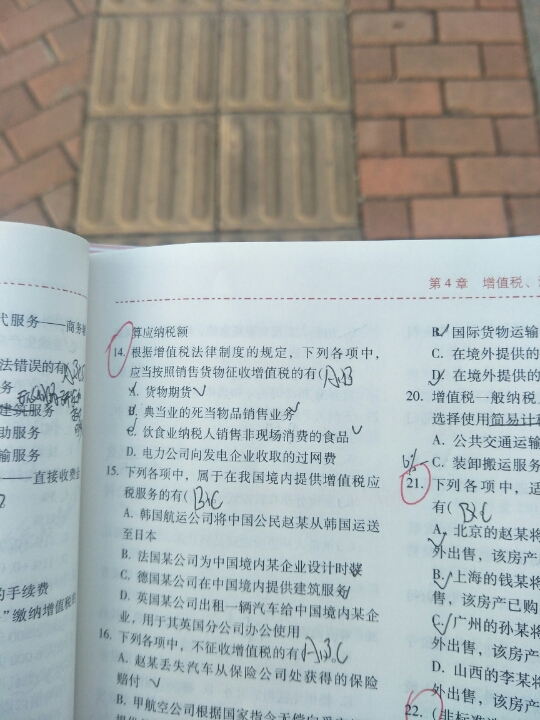 代服务——商务
法错误的有
务
建筑服务
助服务
输服务
——直接收费
的手续费
”缴纳增值税的
第 4 章 增值税、
算应纳税额
14. 根据增值税法律制度的规定，下列各项中，
应当按照销售货物征收增值税的有( AB
A. 货物期货
B. 典当业的死当物品销售业务
C. 饮食业纳税人销售非现场消费的食品
D. 电力公司向发电企业收取的过网费
15. 下列各项中，属于在我国境内提供增值税应
税服务的有( BC
A. 韩国航运公司将中国公民赵某从韩国运送
至日本
B. 法国某公司为中国境内某企业设计时装
C. 德国某公司在中国境内提供建筑服务
D. 英国某公司出租一辆汽车给中国境内某企
业，用于其英国分公司办公使用
16. 下列各项中，不征收增值税的有 ABC
A. 赵某丢失汽车从保险公司处获得的保险
赔付
B. 甲航空公司根据国家指令无偿向
B. 国际货物运输
C. 在境外提供的
D. 在境外提供的
20. 增值税一般纳税
选择使用简易计
A. 公共交通运输
C. 装卸搬运服务
21. 下列各项中，适
有( BC
A. 北京的赵某将
外出售，该房产
B. 上海的钱某将
售，该房产已购
C. 广州的孙某将
外出售，该房产
D. 山西的李某将
外出售，该房产
22.